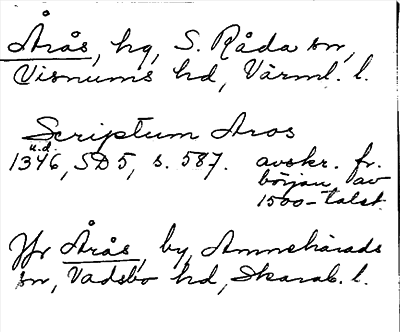 Årås, hg, S. Råda sn,
Visnums hd, Värml. l.
Scriptum Aros
u.d.
1346, SD 5, s. 587. avskr. fr.
början av
1500-talet.
Jfr Årås, by, Amnehärads
sn, Vadsbo hd, Skarab. l.